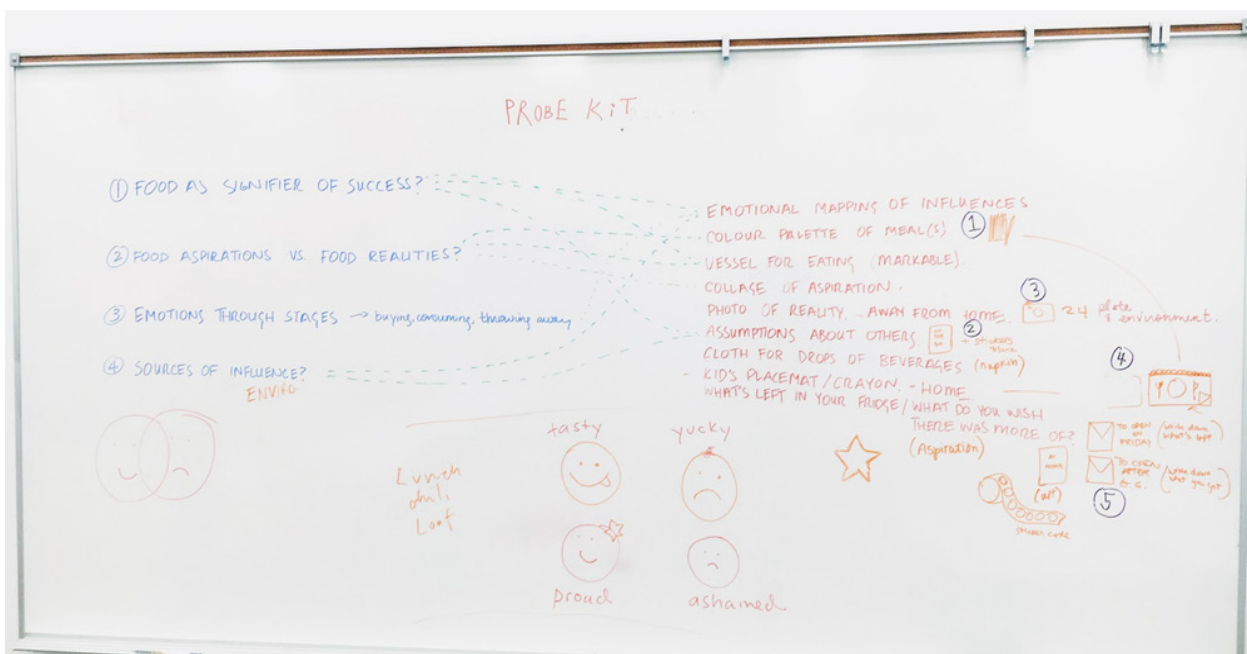 PROBE KIT
① FOOD AS SIGNIFIER OF SUCCESS?
② FOOD ASPIRATIONS VS. FOOD REALITIES?
③ EMOTIONS THROUGH STAGES → buying, consuming, throwing away
④ SOURCES OF INFLUENCE?
ENVIRO
EMOTIONAL MAPPING OF INFLUENCES
COLOUR PALETTE OF MEAL(S) ①
VESSEL FOR EATING (MARKABLE)
COLLAGE OF ASPIRATION.
PHOTO OF REALITY AWAY FROM HOME. ③ 24 plate & environment.
ASSUMPTIONS ABOUT OTHERS. ② + stickers
CLOTH FOR DROPS OF BEVERAGES. (napkin)
KID'S PLACEMAT/CRAYON. - HOME ④
WHAT'S LEFT IN YOUR FRIDGE/WHAT DO YOU WISH
THERE WAS MORE OF?
(Aspiration)
TO OPEN ON FRIDAY (write down what's left)
TO OPEN AFTER G.S. (write down what you got)
⑤
(alt)
sticker code
Lunch
chili
Loaf
tasty
yucky
proud
ashamed